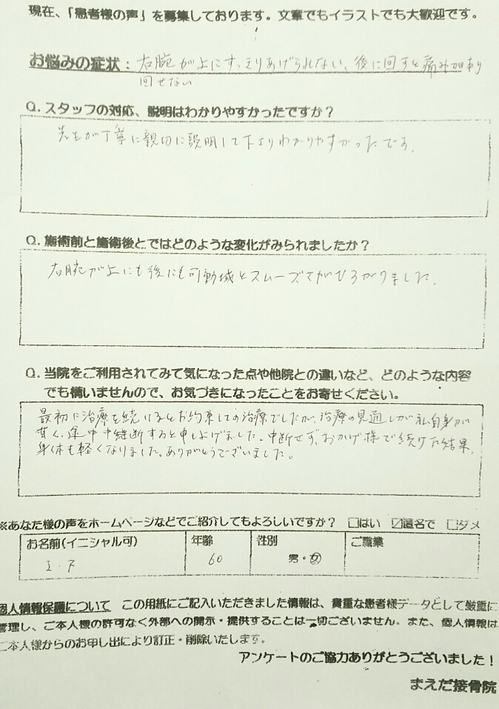 現在、「患者様の声」を募集しております。文章でもイラストでも大歓迎です。
お悩みの症状：右腕が上にすっとりあげられない、後に回すと痛みがあり
回せない
Q. スタッフの対応、説明はわかりやすかったですか？
先生が丁寧に親切に説明して下よりわかりやすかったです。
Q. 施術前と施術後とではどのような変化がみられましたか？
右腕が上にも後にも可動域とスムーズさがひろがりました。
Q. 当院をご利用されてみて気になった点や他院との違いなど、どのような内容
でも構いませんので、お気づきになったことをお寄せください。
最初に治療を続けるとお約束しての治療でしたが、治療の見通しが私自身が
甘く、途中で中断すると申し上げました。中断せず、おかげ様で続けた結果、
身体も軽くなりました。ありがとうございました。
※あなた様の声をホームページなどでご紹介してもよろしいですか？ □はい ☑匿名で □ダメ
お名前(イニシャル可) 年齢 性別 ご職業
I.F 60 男・女
個人情報保護について この用紙にご記入いただきました情報は、貴重な患者様データとして厳重に
管理し、ご本人様の許可なく外部への開示・提供することは一切ございません。また、個人情報は
ご本人様からのお申し出により訂正・削除いたします。
アンケートのご協力ありがとうございました！
まえだ接骨院